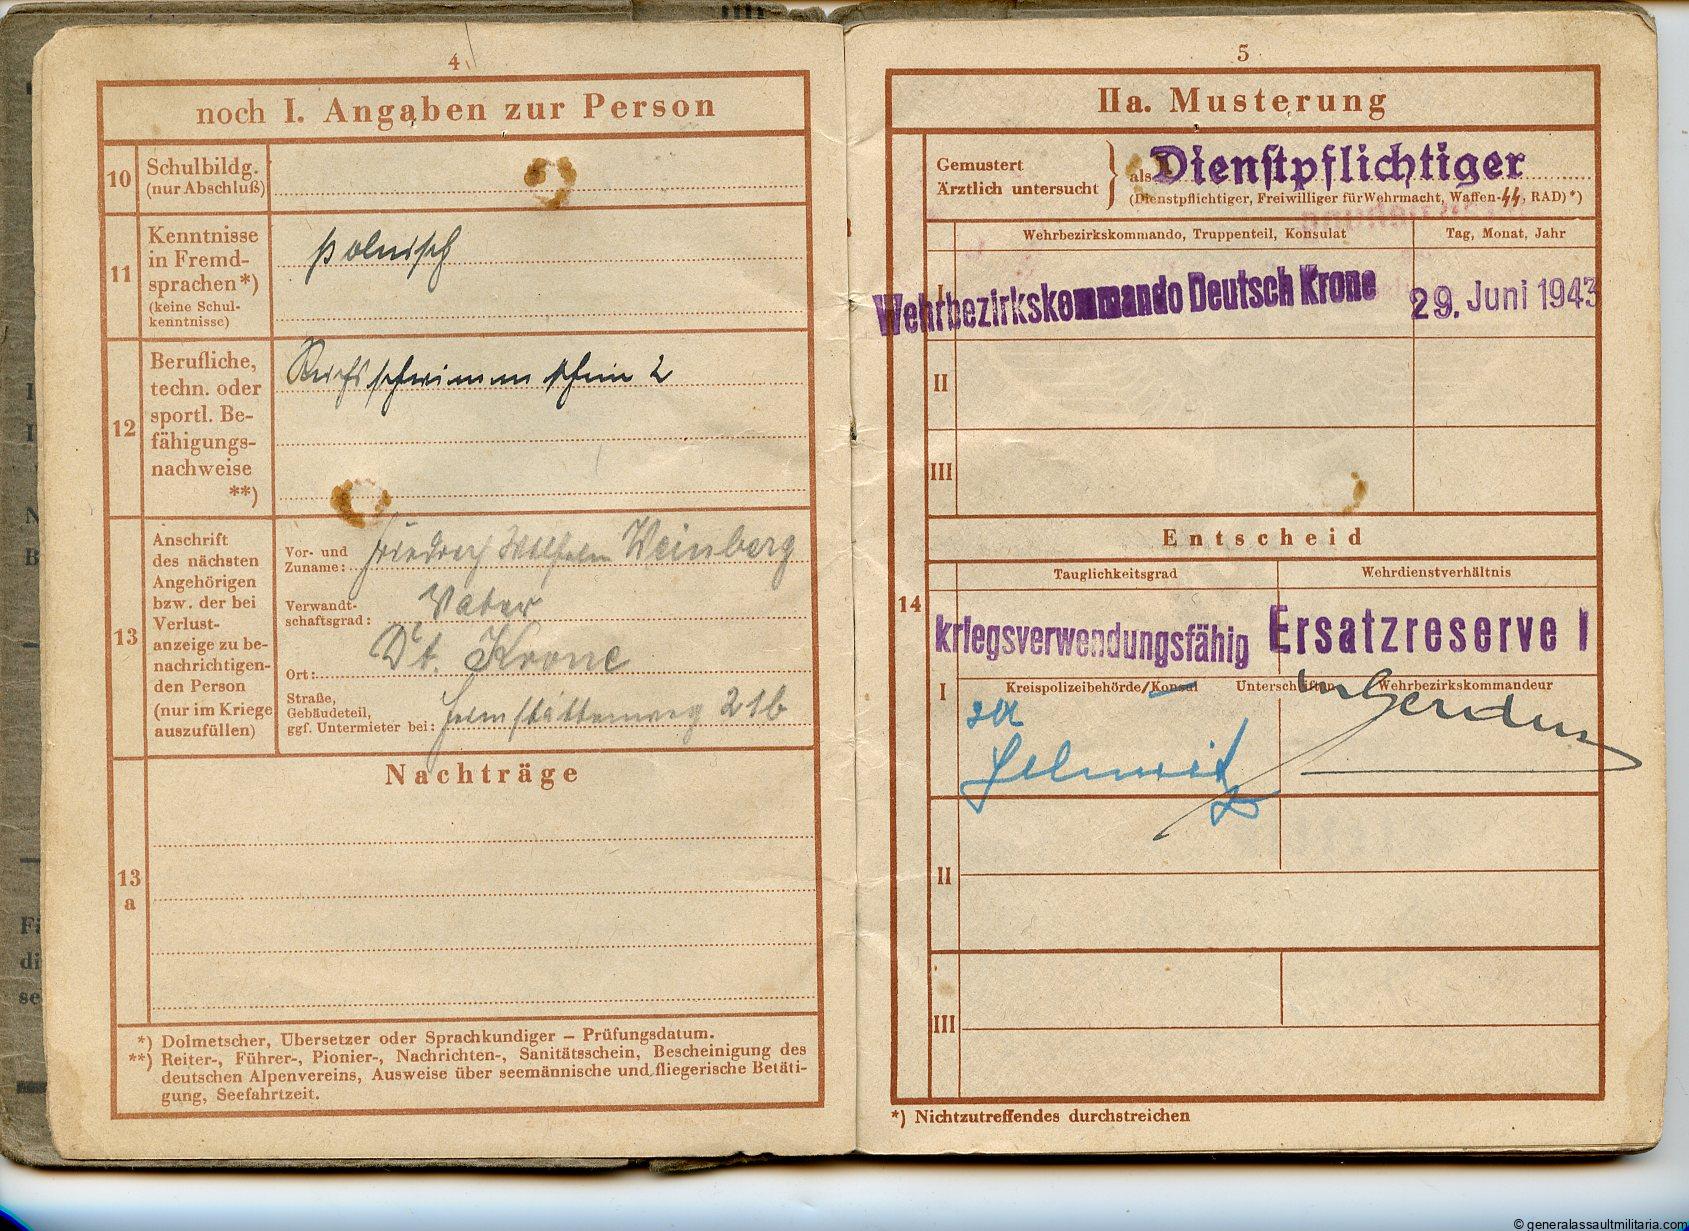 4
noch I. Angaben zur Person
10
Schulbildg.
(nur Abschluß)
11
Kenntnisse
in Fremd-
sprachen*)
(keine Schul-
kenntnisse)
polnisch
12
Berufliche,
techn. oder
sportl. Be-
fähigungs-
nachweise
**)
Reichsschwimmschein 2
13
Anschrift
des nächsten
Angehörigen
bzw. der bei
Verlust-
anzeige zu be-
nachrichtigen-
den Person
(nur im Kriege
auszufüllen)
Vor- und
Zuname: Friedrich Wilhelm Weinberg
Verwandt-
schaftsgrad: Vater
Ort: Dt. Krone
Straße,
Gebäudeteil,
ggf. Untermieter bei: Heimstättenweg 21b
Nachträge
13
a
*) Dolmetscher, Übersetzer oder Sprachkundiger – Prüfungsdatum.
**) Reiter-, Führer-, Pionier-, Nachrichten-, Sanitätsschein, Bescheinigung des
deutschen Alpenvereins, Ausweise über seemännische und fliegerische Betäti-
gung, Seefahrtzeit.
5
IIa. Musterung
Gemustert
Ärztlich untersucht
als Dienstpflichtiger
(Dienstpflichtiger, Freiwilliger für Wehrmacht, Waffen-SS, RAD)*)
Wehrbezirkskommando, Truppenteil, Konsulat
Tag, Monat, Jahr
I
Wehrbezirkskommando Deutsch Krone
29. Juni 1943
II
III
Entscheid
Tauglichkeitsgrad
Wehrdienstverhältnis
14
kriegsverwendungsfähig
Ersatzreserve I
I
Kreispolizeibehörde/Konsul
Unterschriften
Wehrbezirkskommandeur
II
III
*) Nichtzutreffendes durchstreichen
© generalassaultmilitaria.com